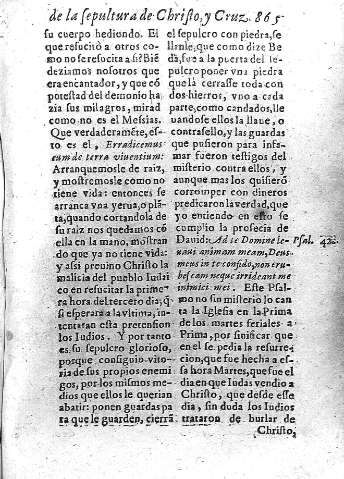 de la sepultura de Christo, y Cruz. 865
su cuerpo hediondo. El
que resucitò a otros co-
mo no se resucita a si? Biē
deziamos nosotros que
era encantador, y que cō
potestad del demonio ha-
zia sus milagros, mirad
como no es el Messias.
Que verdaderamēte, es-
to es el, Erradicemus
eum de terra viuentium:
Arranquemosle de raiz,
y mostremosle como no
tiene vida: entonces se
arranca vna yerua, o plā-
ta, quando cortandola de
su raiz nos quedamos cō
ella en la mano, mostran
do que ya no tiene vida:
y assi preuino Christo la
malicia del pueblo Iudai
co en resucitar la prime-
ra hora del tercero dia; q̄
si esperarà a la vltima, in-
tentaran esta pretension
los Iudios. Y por tanto
es su sepulcro glorioso,
porque consiguio vito-
ria de sus propios enemi
gos, por los mismos me-
dios que ellos le querian
abatir: ponen guardas pa
ra que le guarden, cierrā
el sepulcro con piedra, se
llanle, que como dize Be
da, fue a la puerta del se-
pulcro poner vna piedra
que la cerrasse toda con
dos hierros, vno a cada
parte, como candados, lle
uandose ellos la llaue, o
contrasello, y las guardas
que pusieron para infa-
mar fueron testigos del
misterio contra ellos, y
aunque mas los quisierō
corromper con dineros
predicaron la verdad, que
yo entiendo en esto se
cumplio la profecia de
Dauid: Ad te Domine le-
uaui animam meam, Deus
meus in te confido, non eru-
bescam neque irrideant me
inimici mei. Este Psal-
mo no sin misterio lo can
ta la Iglesia en la Prima
de los martes feriales a
Prima, por sinificar que
en el se pedia la resurre-
cion, que fue hecha a es-
sa hora Martes, que fue el
dia en que Iudas vendio a
Christo, que desde esse
dia, sin duda los Iudios
trataron de burlar de
Christo,
Psal. 42.